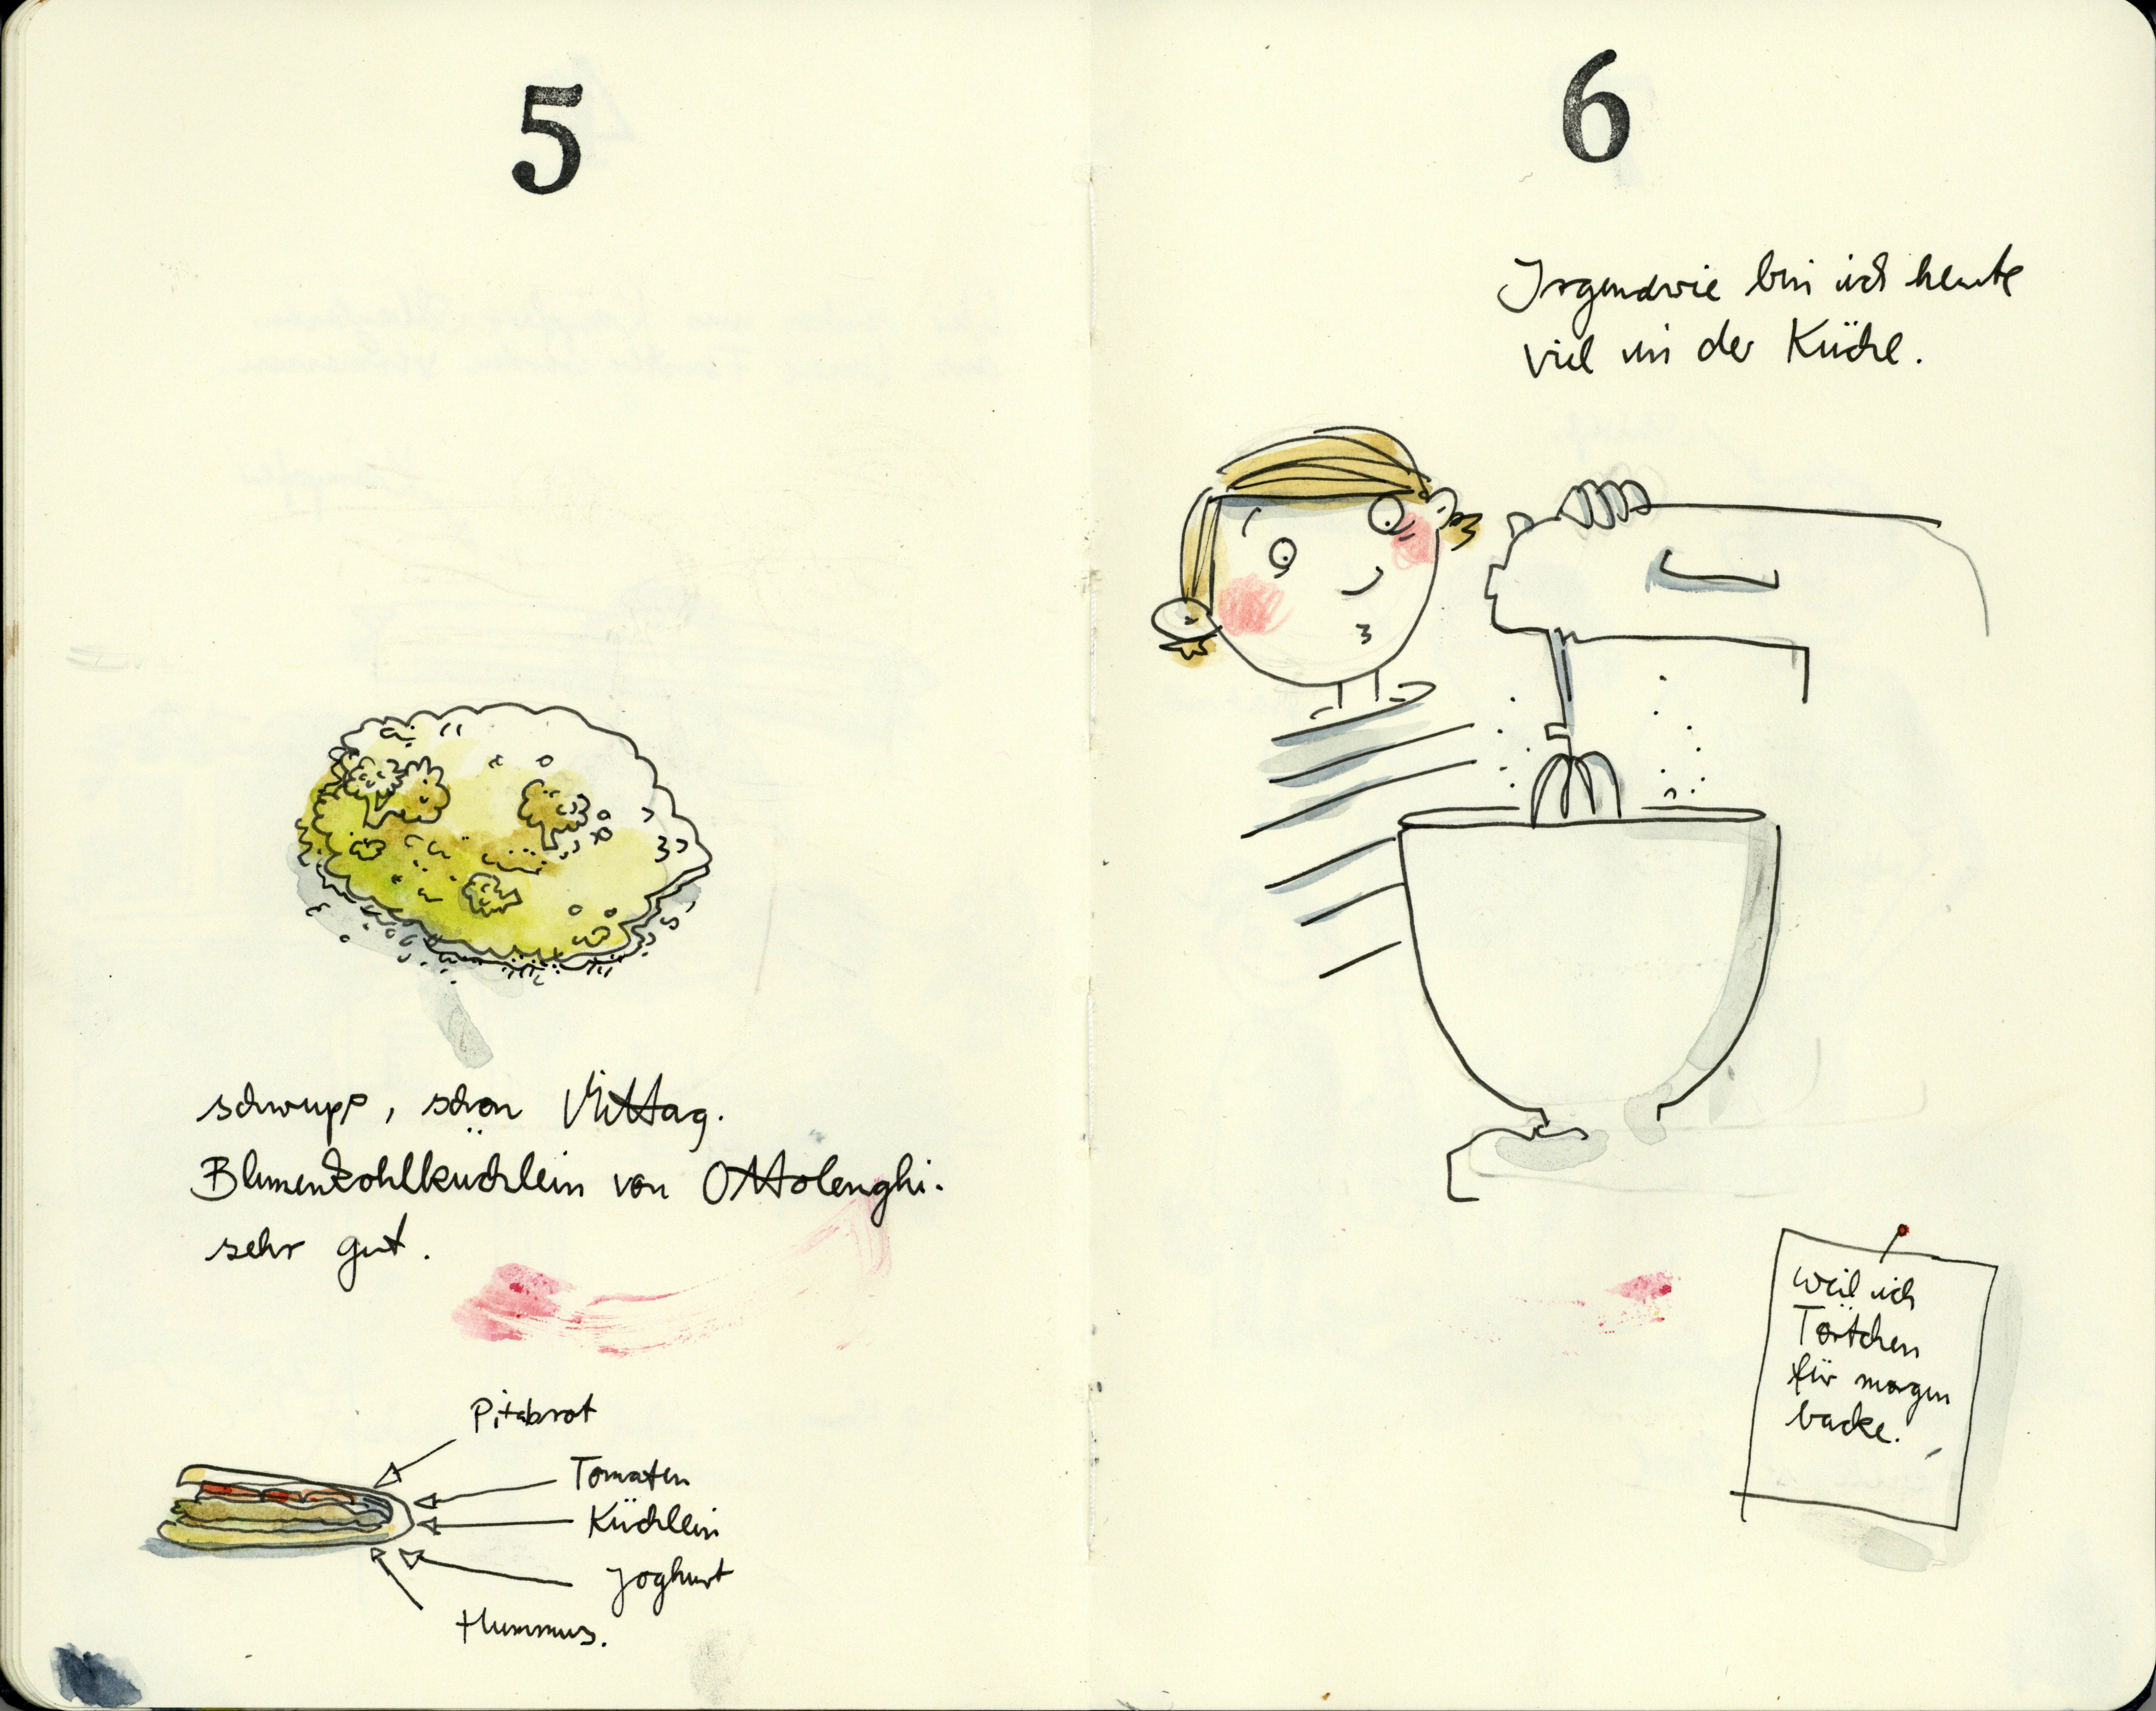 5
schwupp, schon Mittag.
Blumenkohlküchlein von Ottolenghi.
sehr gut.
Pitabrot
Tomaten
Küchlein
Joghurt
Hummus.
6
Irgendwie bin ich heute
viel in der Küche.
weil ich
Törtchen
für morgen
backe.